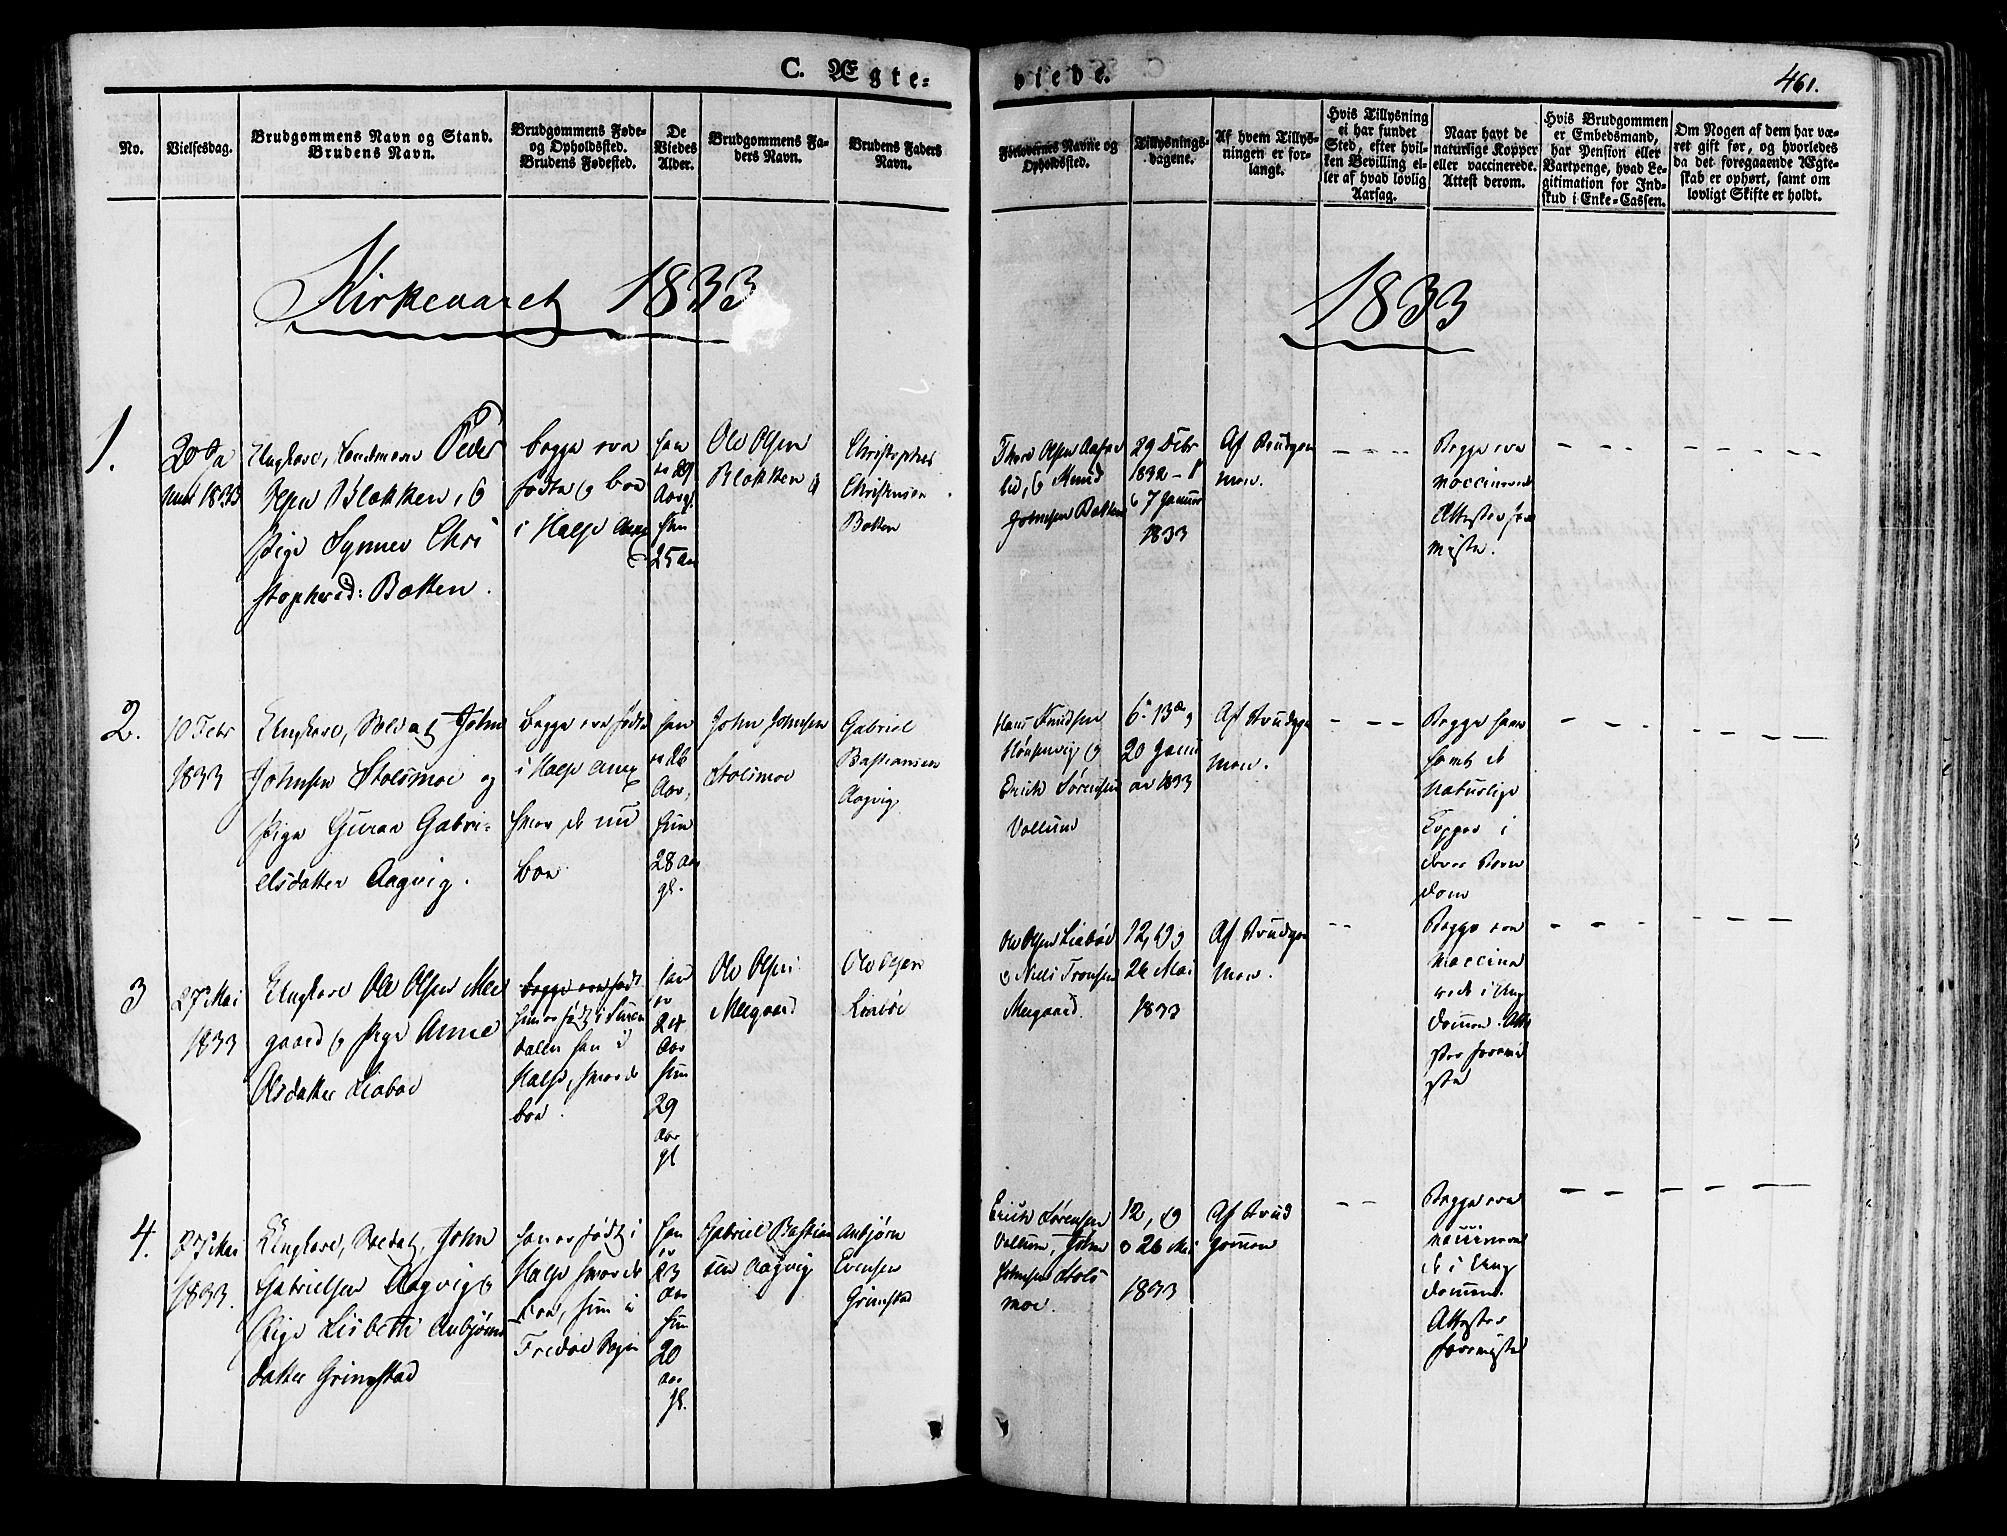 C. Ægte=
viede.
461.
No.
Vielsesdag.
Brudgommens Navn og Stand.
Brudens Navn.
Brudgommens Føde-
og Opholdssted.
Brudens Fødested.
De
Viedes
Alder.
Brudgommens Fa-
ders Navn.
Brudens Faders
Navn.
Forlovernes Navne og
Opholdssted.
Tillysnings-
dagene.
Af hvem Tillys-
ningen er for-
langt.
Hvis Tillysning
ei har fundet
Sted, efter hvil-
ken Bevilling el-
ler af hvad lovlig
Aarsag.
Naar havt de
naturlige Kopper
eller vaccinerede.
Attest derom.
Hvis Brudgommen
er Embedsmand,
har Pension eller
Vartpenge, hvad Le-
gitimation for Ind-
skud i Enke-Cassen.
Om Nogen af dem har væ-
ret gift før, og hvorledes
da det foregaaende Ægte-
skab er ophørt, samt om
lovligt Skifte er holdt.
Kirkeaaret 1833
1833
1.
20 Ja
nuar 1833
Ungkarl, Landmand Peder
Olsen Blakken, og
Pige Synnev Chri
stophersd: Botten.
begge ere
fødte og boe
i Halse Anex
han
er 29
Aar gl.
hun
25 aar
Ole Olsen
Blakken
Christopher
Christensen
Botten
Thore Olsen
og Knud
Johnsen Botten
29 Febr
1832 -
6 7 Januar
1833
Af Brudgom
men.
Begge ere
vaccinerede
Attester fore
viiste.
2.
10 Febr
1833
Ungkarl, Soldat John
Johnsen Stolsmoe og
Pige Guraa Gabri=
elsdatter Aagvig.
begge ere fødte
i Halse Anex
hvor de nu
boe
han
er 26
Aar,
hun
28 aar
gl.
John Johnsen
Stolsmoe
Gabriel
Bastiansen
Aagvig
Hans Knudsen
og
Erich Sørensen
Vollum
6. 13de og
20 Janu
ar 1833
Af Brudgom
men.
Begge have
havt de
naturlige
Kopper i
deres Barn
dom
3
27 Mai
1833
Ungkarl Ole Olsen Mee
gaard og Pige Anne
Olsdatter Liabøe
begge ere født
hun er født i Suren
dalen han i
Halse, hvor de
boe.
han
er
24
Aar
hun
29
Aar
gl
Ole Olsen
Meegaard
Ole Olsen
Liabøe
Ole Olsen Liabøe
og Niels Tronsen
Meegaard.
12, 19 og
26 Mai
1833
Af Brudgom
men.
Begge ere
vaccine
rede i Ung
dommen. Atte
ster forevii
ste
4.
27 Mai
1833.
Ungkarl, Soldat, John
Gabrielsen Aagvig og
Pige Lisbeth Anbjørns
datter Grimstad
han er født i
Halse hvor de
boe, hun i
Fredøe Sogn
han
er
23
aar
hun
20
aar
gl.
Gabriel Bastian
sen Aagvig
Anbjørn
Evensen
Grimstad
Erich Sørensen
Vollum, John
Johnsen Stols
moe.
12, 19
og 26 Mai
1833
Af Brud
gommen
Begge ere
vaccinere
de i Ung
dommen.
Attester
foreviiste